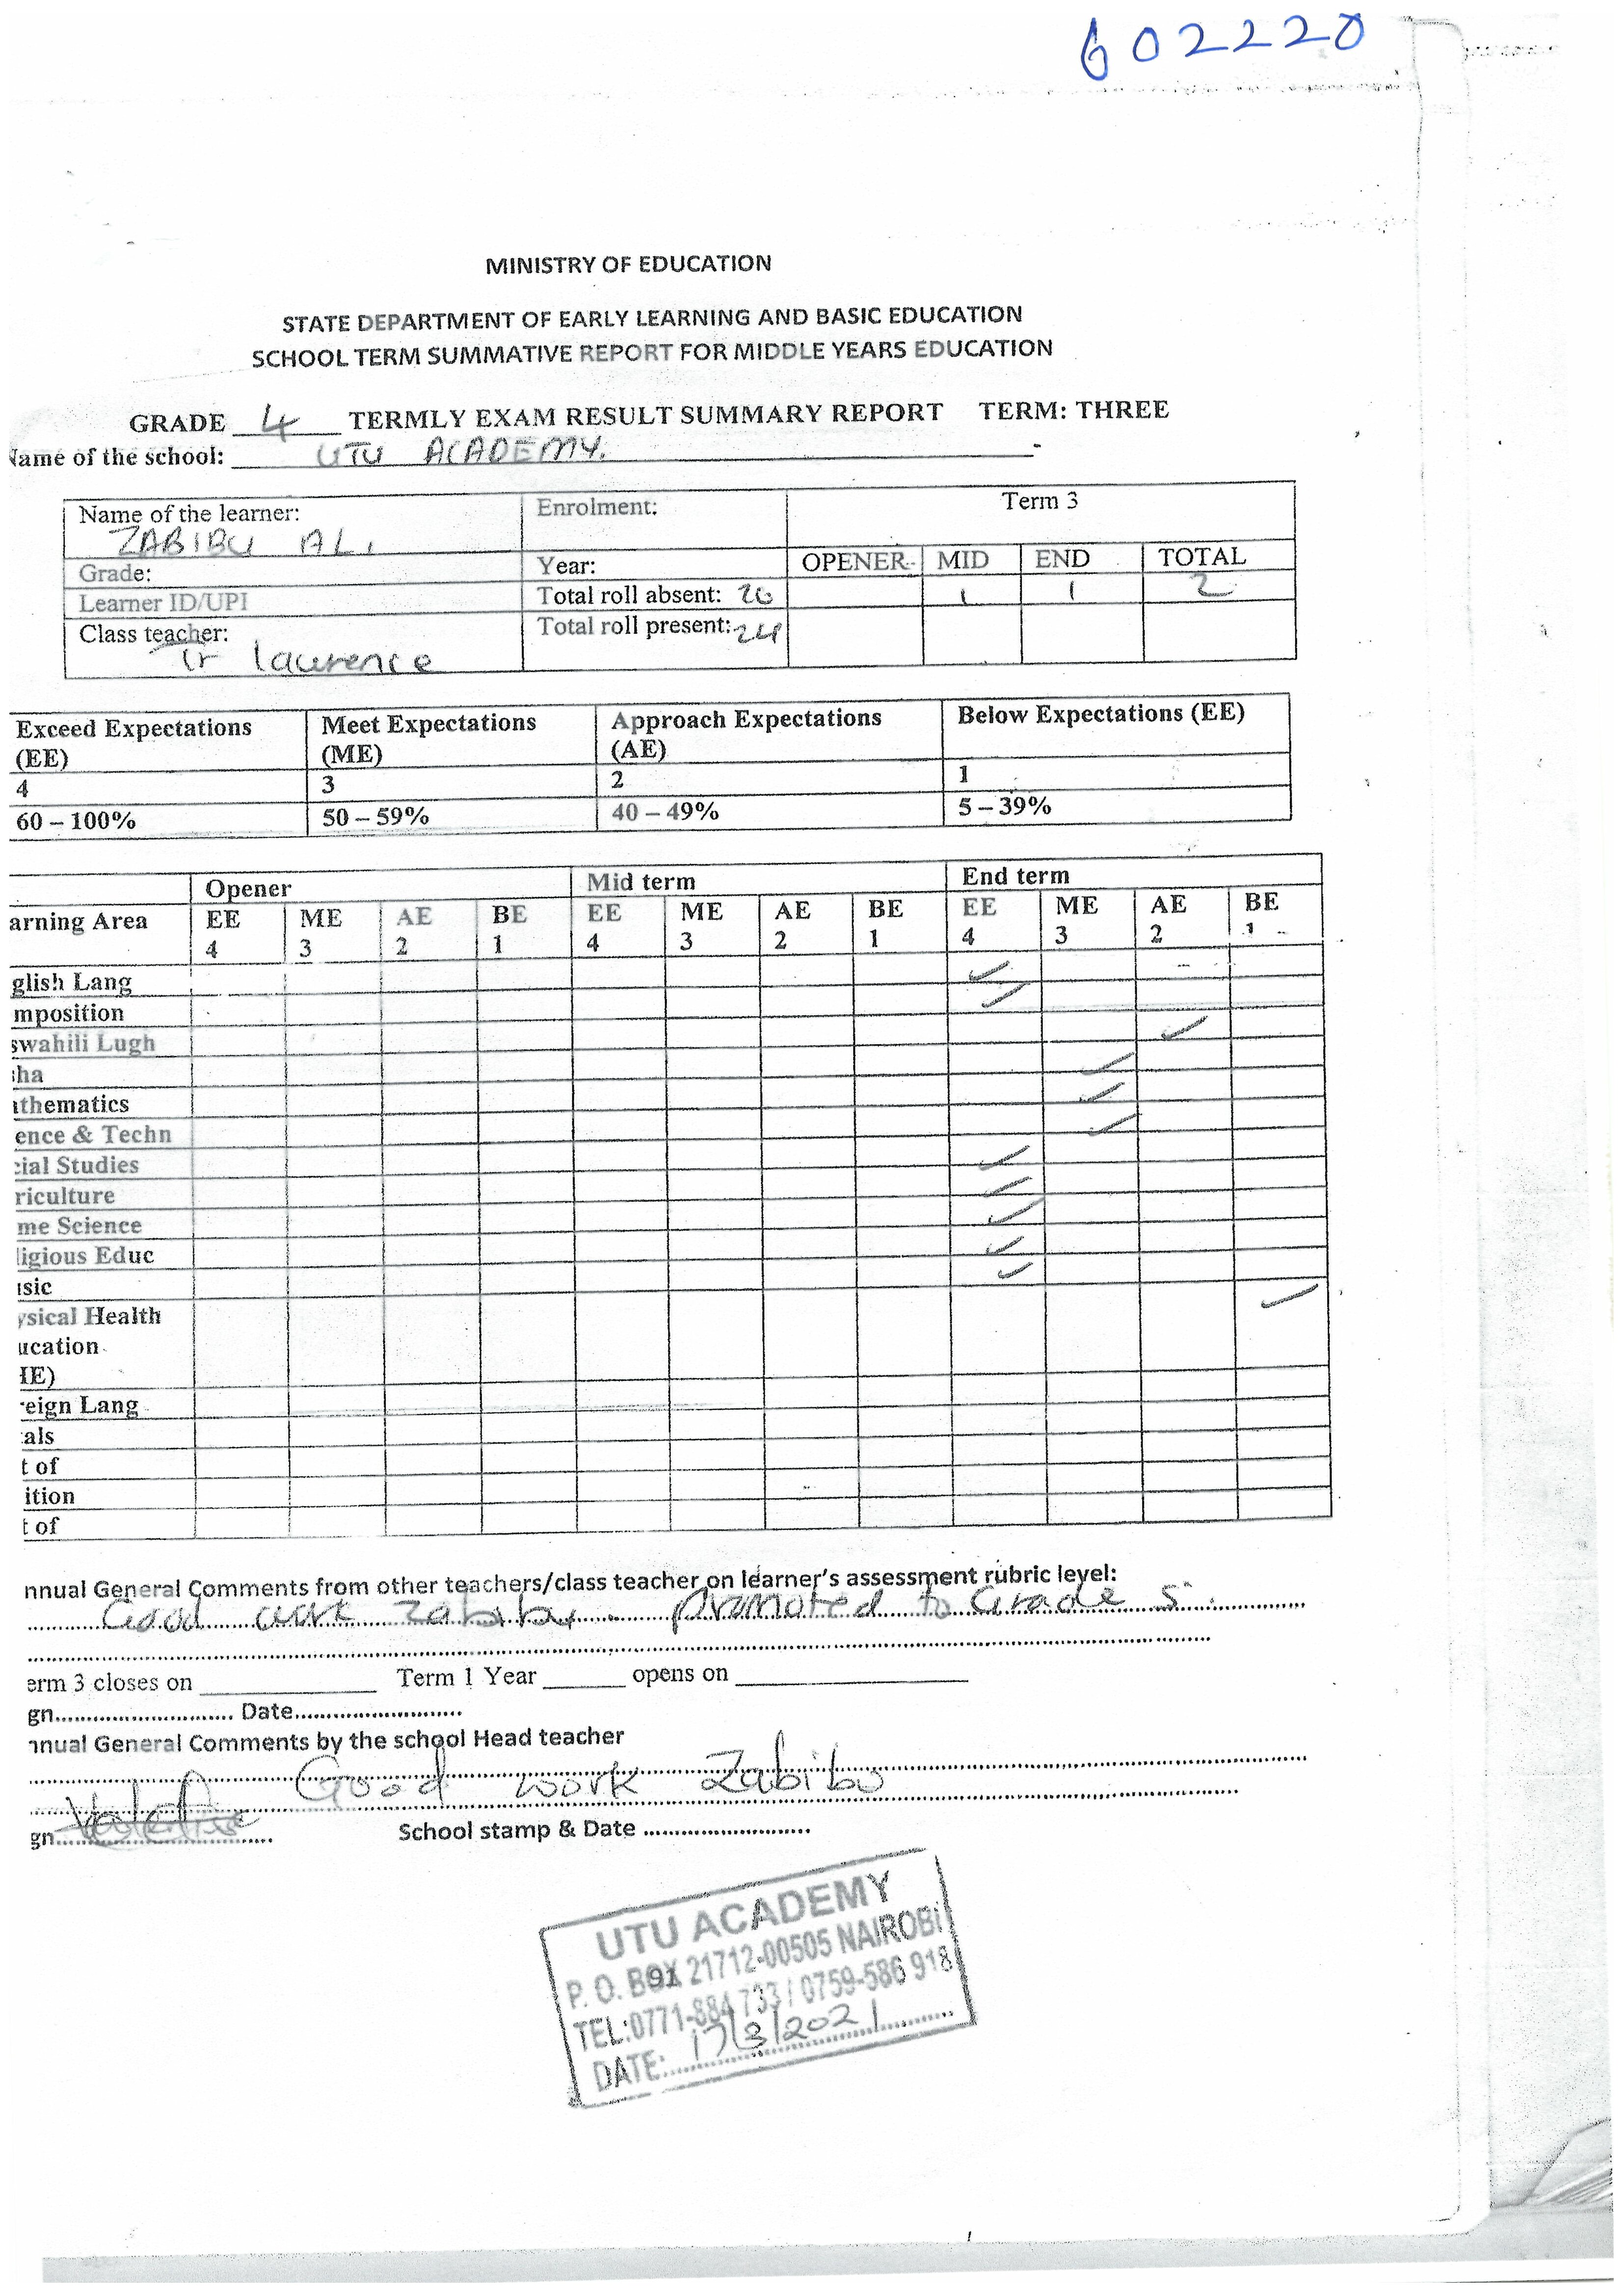 602220
MINISTRY OF EDUCATION
STATE DEPARTMENT OF EARLY LEARNING AND BASIC EDUCATION
SCHOOL TERM SUMMATIVE REPORT FOR MIDDLE YEARS EDUCATION
GRADE 4 TERMLY EXAM RESULT SUMMARY REPORT TERM: THREE
Name of the school: UTU ACADEMY.
Name of the learner: Enrolment: Term 3
ZABIBU ALI
Grade: Year: OPENER MID END TOTAL
Learner ID/UPI Total roll absent: 20 1 1 2
Class teacher: Total roll present: 24
Tr laurence
Exceed Expectations Meet Expectations Approach Expectations Below Expectations (EE)
(EE) (ME) (AE)
4 3 2 1
60 – 100% 50 – 59% 40 – 49% 5 – 39%
Opener Mid term End term
arning Area EE ME AE BE EE ME AE BE EE ME AE BE
4 3 2 1 4 3 2 1 4 3 2 1
glish Lang ✓
mposition ✓
swahili Lugh ✓
sha ✓
athematics ✓
ence & Techn ✓
cial Studies ✓
riculture ✓
me Science ✓
ligious Educ ✓
usic ✓
ysical Health ✓
ucation
HE)
reign Lang
als
t of
ition
t of
nnual General Comments from other teachers/class teacher on learner's assessment rubric level:
Good work Zabibu. promoted to Grade 5.
erm 3 closes on Term 1 Year opens on
gn. Date
nnual General Comments by the school Head teacher
Good work Zabibu
gn. School stamp & Date
UTU ACADEMY
P. O. BOX 21712-00505 NAIROBI
91
TEL:0771-884 733 / 0759-586 918
DATE: 17/3/2021